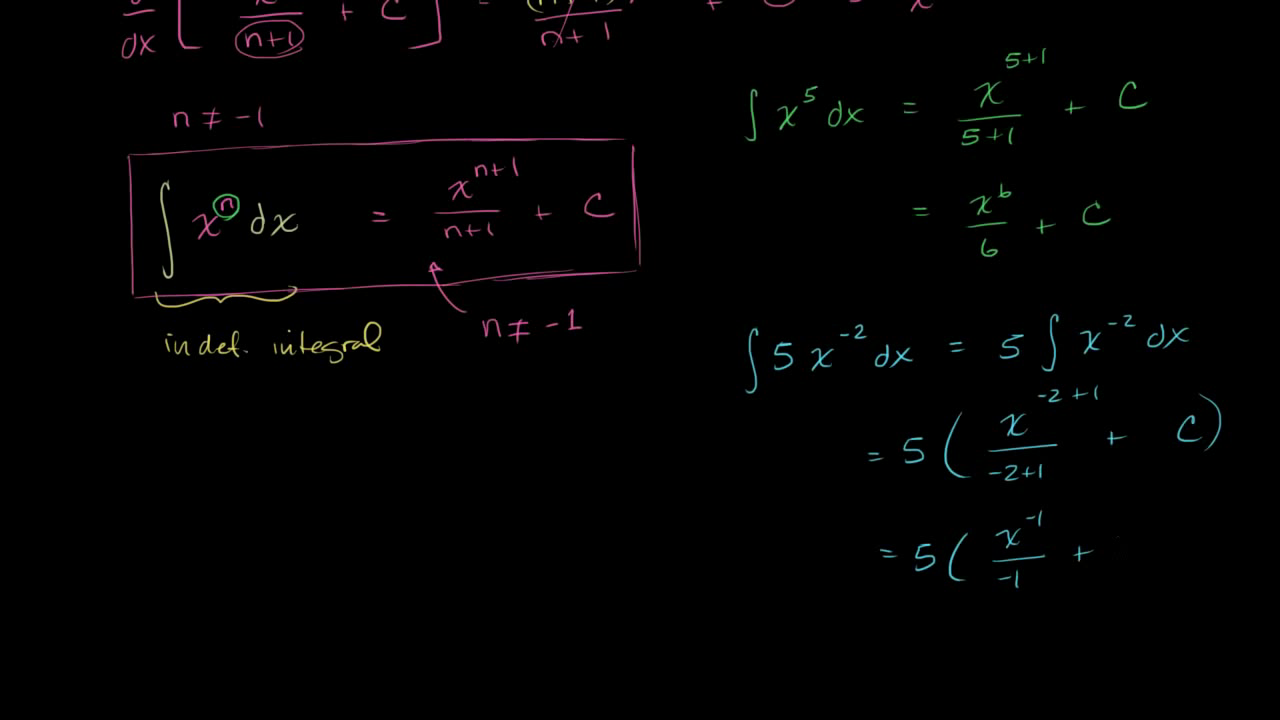 d/dx [ x/(n+1) + C ] = /(n+1) + x
n ≠ -1
∫ xⁿ dx = xⁿ⁺¹/(n+1) + C
n ≠ -1
indef. integral
∫ x⁵ dx = x⁵⁺¹/(5+1) + C
= x⁶/6 + C
∫ 5 x⁻² dx = 5 ∫ x⁻² dx
= 5 ( x⁻²⁺¹/(-2+1) + C )
= 5 ( x⁻¹/-1 +